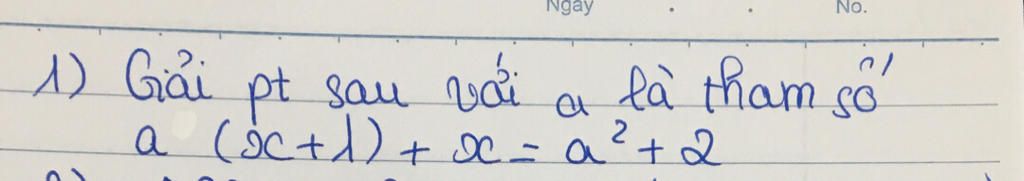 Ngày No.
1) Giải pt sau với a là tham số
a (x+1) + x = a² + 2